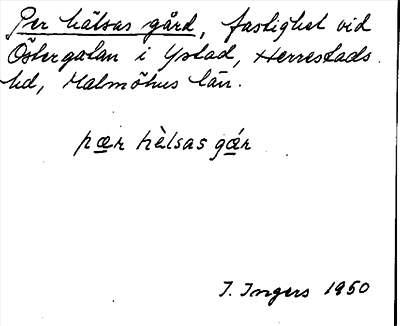 Per hälsas gård, fastighet vid
Östergatan i Ystad, Herrestads
hd, Malmöhus län.
pær hèlsas gǽr
I. Ingers 1950